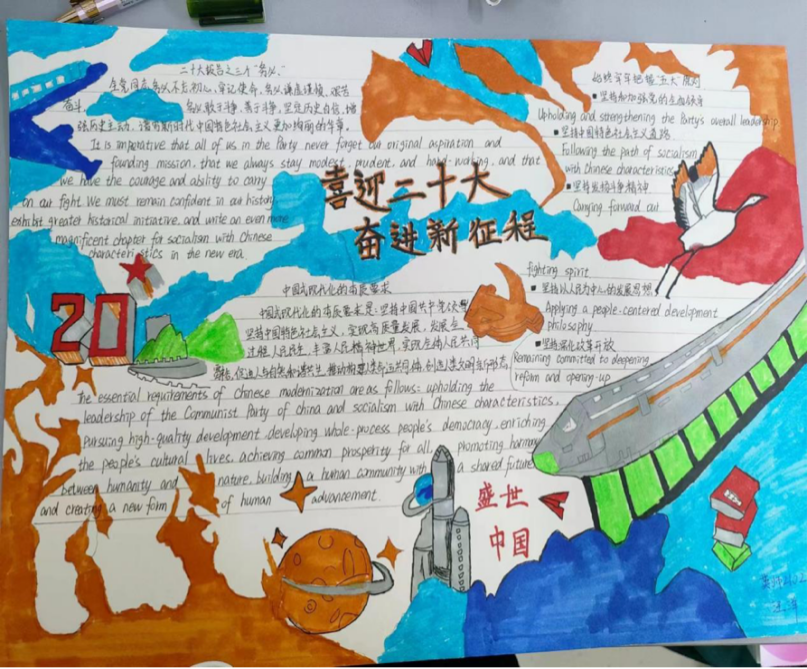 二十大报告之三个"务必"
全党同志务必不忘初心、牢记使命,务必谦虚谨慎、艰苦
奋斗,务必敢于斗争、善于斗争,坚定历史自信,增
强历史主动,谱写新时代中国特色社会主义更加绚丽的华章。
It is imperative that all of us in the Party never forget our original aspiration and
founding mission, that we always stay modest, prudent, and hard-working, and that
we have the courage and ability to carry
on our fight. We must remain confident in our history,
exhibit greater historical initiative, and write an even more
magnificent chapter for socialism with Chinese
characteristics in the new era.
喜迎二十大
奋进新征程
"五大"原则
■ 坚持和加强党的全面领导
Upholding and strengthening the Party's overall leadership
■ 坚持中国特色社会主义道路
Following the path of socialism
with Chinese characteristics
■ 坚持发扬斗争精神
Carrying forward our
fighting spirit
■ 坚持以人民为中心的发展思想
Applying a people-centered development
philosophy
■ 坚持深化改革开放
Remaining committed to deepening
reform and opening-up
20
中国式现代化的本质要求
中国式现代化的本质要求是:坚持中国共产党
坚持中国特色社会主义,实现高质量发展,发展全
过程人民民主,丰富人民精神世界,实现全体人民共同
富裕,促进人与自然和谐共生,推动构建人类命运共同体,创造人类文明新形态。
The essential requirements of Chinese modernization are as follows: upholding the
leadership of the Communist Party of china and socialism with Chinese characteristics,
pursuing high-quality development, developing whole-process people's democracy, enriching
the people's cultural lives, achieving common prosperity for all, promoting harmony
between humanity and nature, building a human community with a shared future,
and creating a new form of human advancement.
盛世
中国